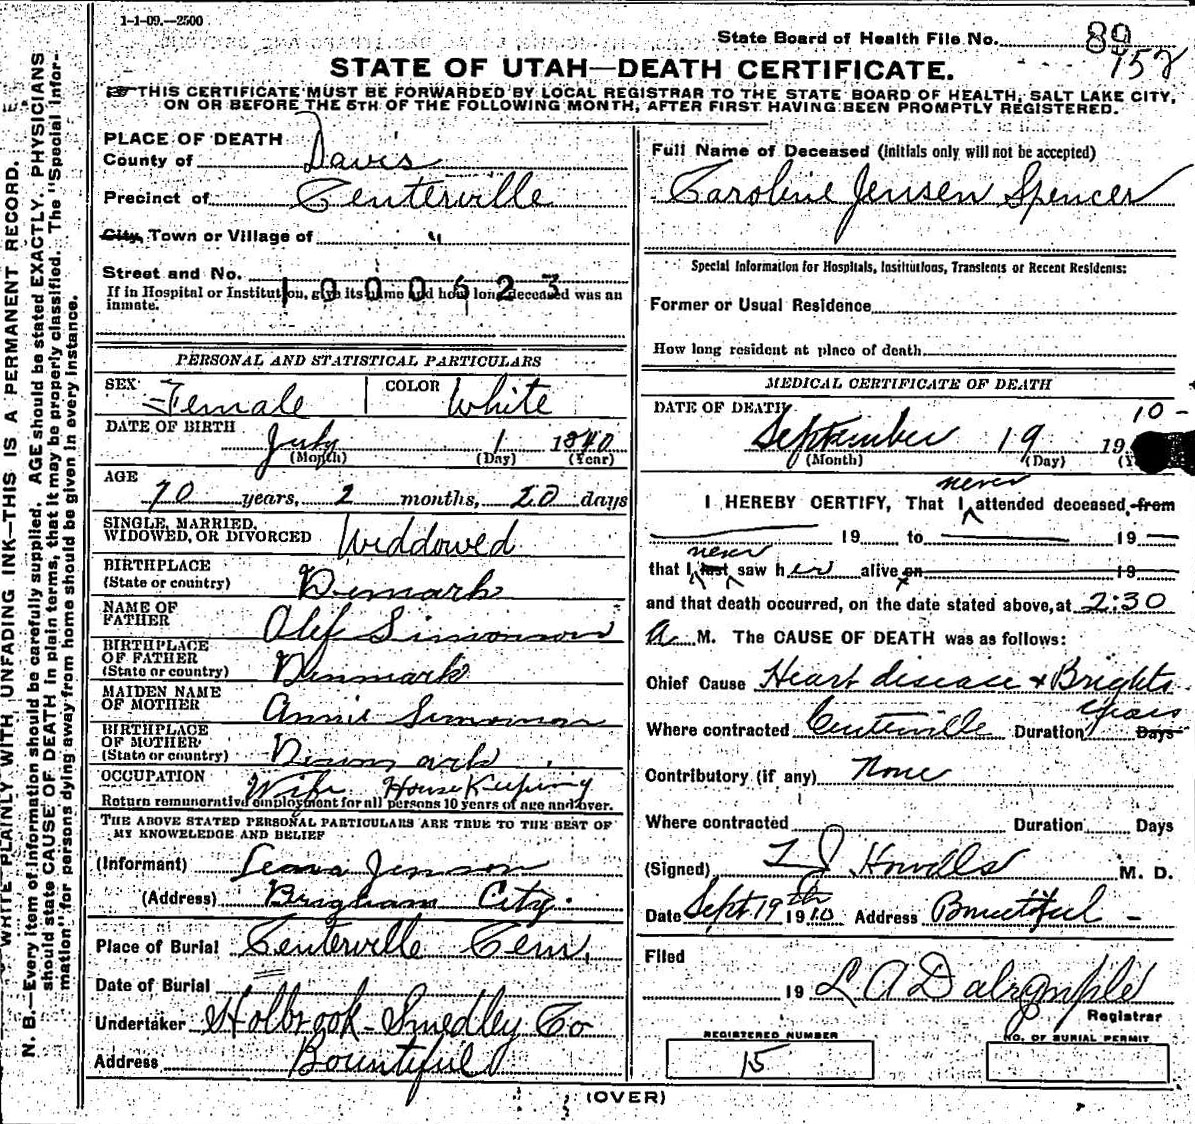 1-1-09.—2500
State Board of Health File No. 89
952
STATE OF UTAH—DEATH CERTIFICATE.
THIS CERTIFICATE MUST BE FORWARDED BY LOCAL REGISTRAR TO THE STATE BOARD OF HEALTH, SALT LAKE CITY,
ON OR BEFORE THE 5TH OF THE FOLLOWING MONTH, AFTER FIRST HAVING BEEN PROMPTLY REGISTERED.
WRITE PLAINLY WITH UNFADING INK—THIS IS A PERMANENT RECORD.
N. B.—Every item of information should be carefully supplied. AGE should be stated EXACTLY. PHYSICIANS
should state CAUSE OF DEATH in plain terms, that it may be properly classified. The "Special Infor-
mation" for persons dying away from home should be given in every instance.
PLACE OF DEATH
County of Davis
Precinct of Centerville
City, Town or Village of "
Street and No.
1000523
If in Hospital or Institution, give its name and how long deceased was an
inmate.
PERSONAL AND STATISTICAL PARTICULARS
SEX Female COLOR White
DATE OF BIRTH
July 1 1840
(Month) (Day) (Year)
AGE
70 years, 2 months, 20 days
SINGLE, MARRIED,
WIDOWED, OR DIVORCED Widdowed
BIRTHPLACE
(State or country) Demark
NAME OF
FATHER Olef Simonson
BIRTHPLACE
OF FATHER
(State or country) Denmark
MAIDEN NAME
OF MOTHER Annie Simonson
BIRTHPLACE
OF MOTHER
(State or country) Denmark
OCCUPATION Wife House Keeping
Return remunerative employment for all persons 10 years of age and over.
THE ABOVE STATED PERSONAL PARTICULARS ARE TRUE TO THE BEST OF
MY KNOWLEDGE AND BELIEF
(Informant) Jenson
(Address) Brigham City.
Place of Burial Centerville Cem.
Date of Burial
Undertaker Holbrook-Smedley Co
Address Bountiful
Full Name of Deceased (initials only will not be accepted)
Caroline Jensen Spencer
Special Information for Hospitals, Institutions, Transients or Recent Residents:
Former or Usual Residence
How long resident at place of death
MEDICAL CERTIFICATE OF DEATH
DATE OF DEATH 10-
September 19 19
(Month) (Day)
never
I HEREBY CERTIFY, That I attended deceased from
19 to 19
never
that I last saw her alive on 19
and that death occurred, on the date stated above, at 2:30
a. M. The CAUSE OF DEATH was as follows:
Chief Cause Heart disease & Brights
years
Where contracted Centerville Duration Days
Contributory (if any) None
Where contracted Duration Days
(Signed) Howells M. D.
Date Sept 19th 1910 Address Bountiful -
Filed
19 L A Dalrymple
Registrar
REGISTERED NUMBER
15
NO. OF BURIAL PERMIT
(OVER)